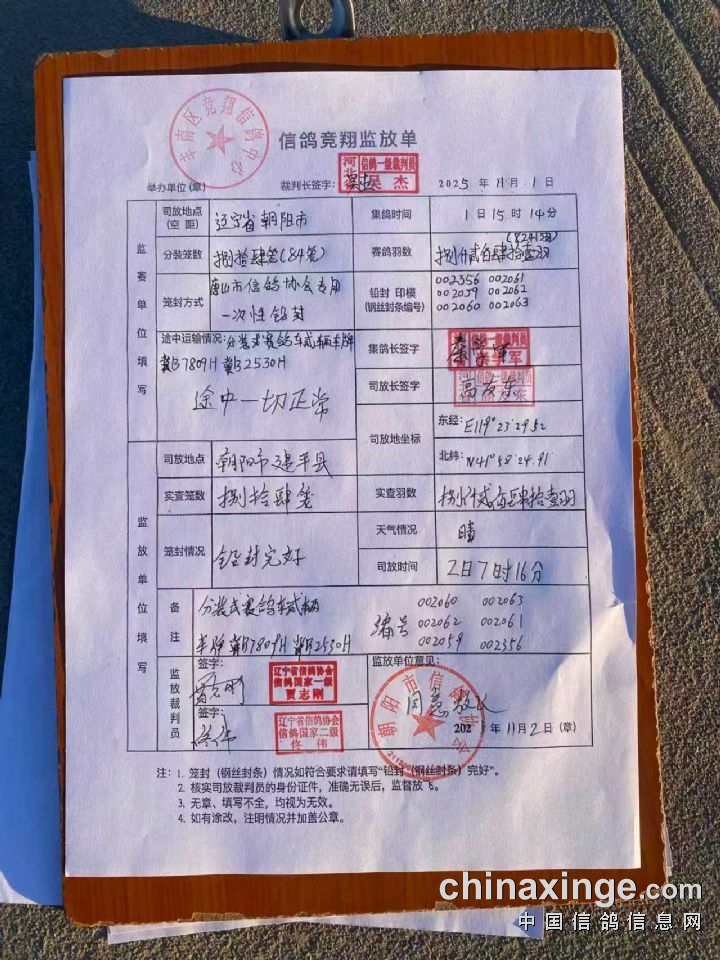 丰南区竞翔信鸽中心
信鸽竞翔监放单
举办单位(章)
裁判长签字:
河北省 信鸽一级裁判员 吴杰
2025年11月1日
监赛单位填写
司放地点(空距) 辽宁省朝阳市 集鸽时间 1日15时14分
分装笼数 捌拾肆笼(84笼) 赛鸽羽数 捌仟贰佰肆拾壹羽(8241羽)
笼封方式 唐山市信鸽协会专用一次性铅封
铅封 印模(钢丝封条编号)
002356 002061
002059 002062
002060 002063
途中运输情况: 分装式赛鸽车贰辆车牌
冀B7809H 冀B2530H
途中一切正常
集鸽长签字 秦学军
司放长签字 高友东
司放地坐标
东经: E119°23′29.52
北纬: N41°58′24.91
监放单位填写
司放地点 朝阳市建平县
实查笼数 捌拾肆笼 实查羽数 捌仟贰佰肆拾壹羽
笼封情况 铅封完好
天气情况 晴
司放时间 2日7时16分
备注 分装式赛鸽车贰辆
车牌冀B7809H 冀B2530H
编号
002060 002063
002062 002061
002059 002356
监放裁判员
签字: 贾志刚
辽宁省信鸽协会
信鸽国家一级
贾志刚
签字: 佟伟
辽宁省信鸽协会
信鸽国家二级
佟伟
监放单位意见:
同意放飞
朝阳市信鸽协会
202 年11月2日(章)
注: 1. 笼封(钢丝封条)情况如符合要求请填写“铅封(钢丝封条)完好”。
2. 核实司放裁判员的身份证件,准确无误后,监督放飞。
3. 无章、填写不全,均视为无效。
4. 如有涂改,注明情况并加盖公章。
chinaxinge.com
中国信鸽信息网